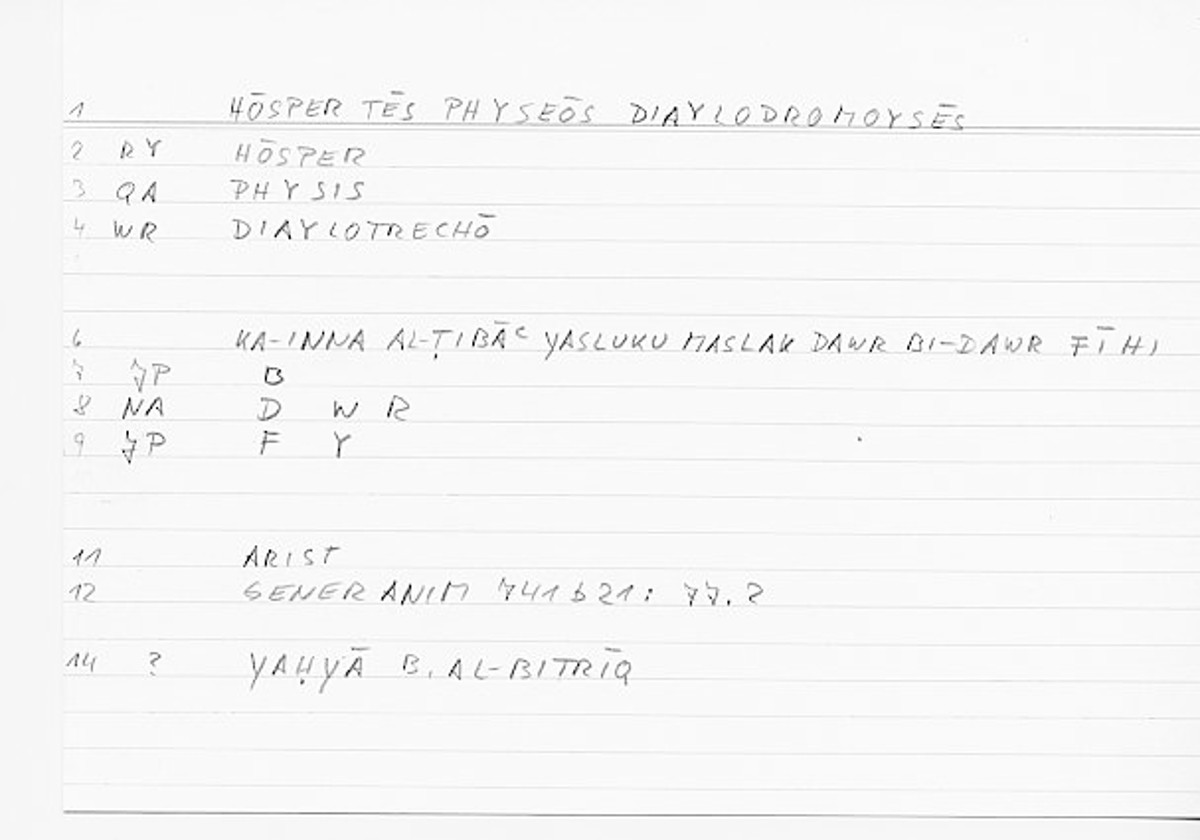 1 HŌSPER TĒS PHYSEŌS DIAYLODROMOYSĒS
2 RY HŌSPER
3 QA PHYSIS
4 WR DIAYLOTRECHŌ
6 KA-INNA AL-ṬIBĀʿ YASLUKU MASLAK DAWR BI-DAWR FĪHI
7 JP B
8 NA D W R
9 JP F Y
11 ARIST
12 GENER ANIM 741b21: 77.2
14 ? YAḤYĀ B. AL-BITRĪQ